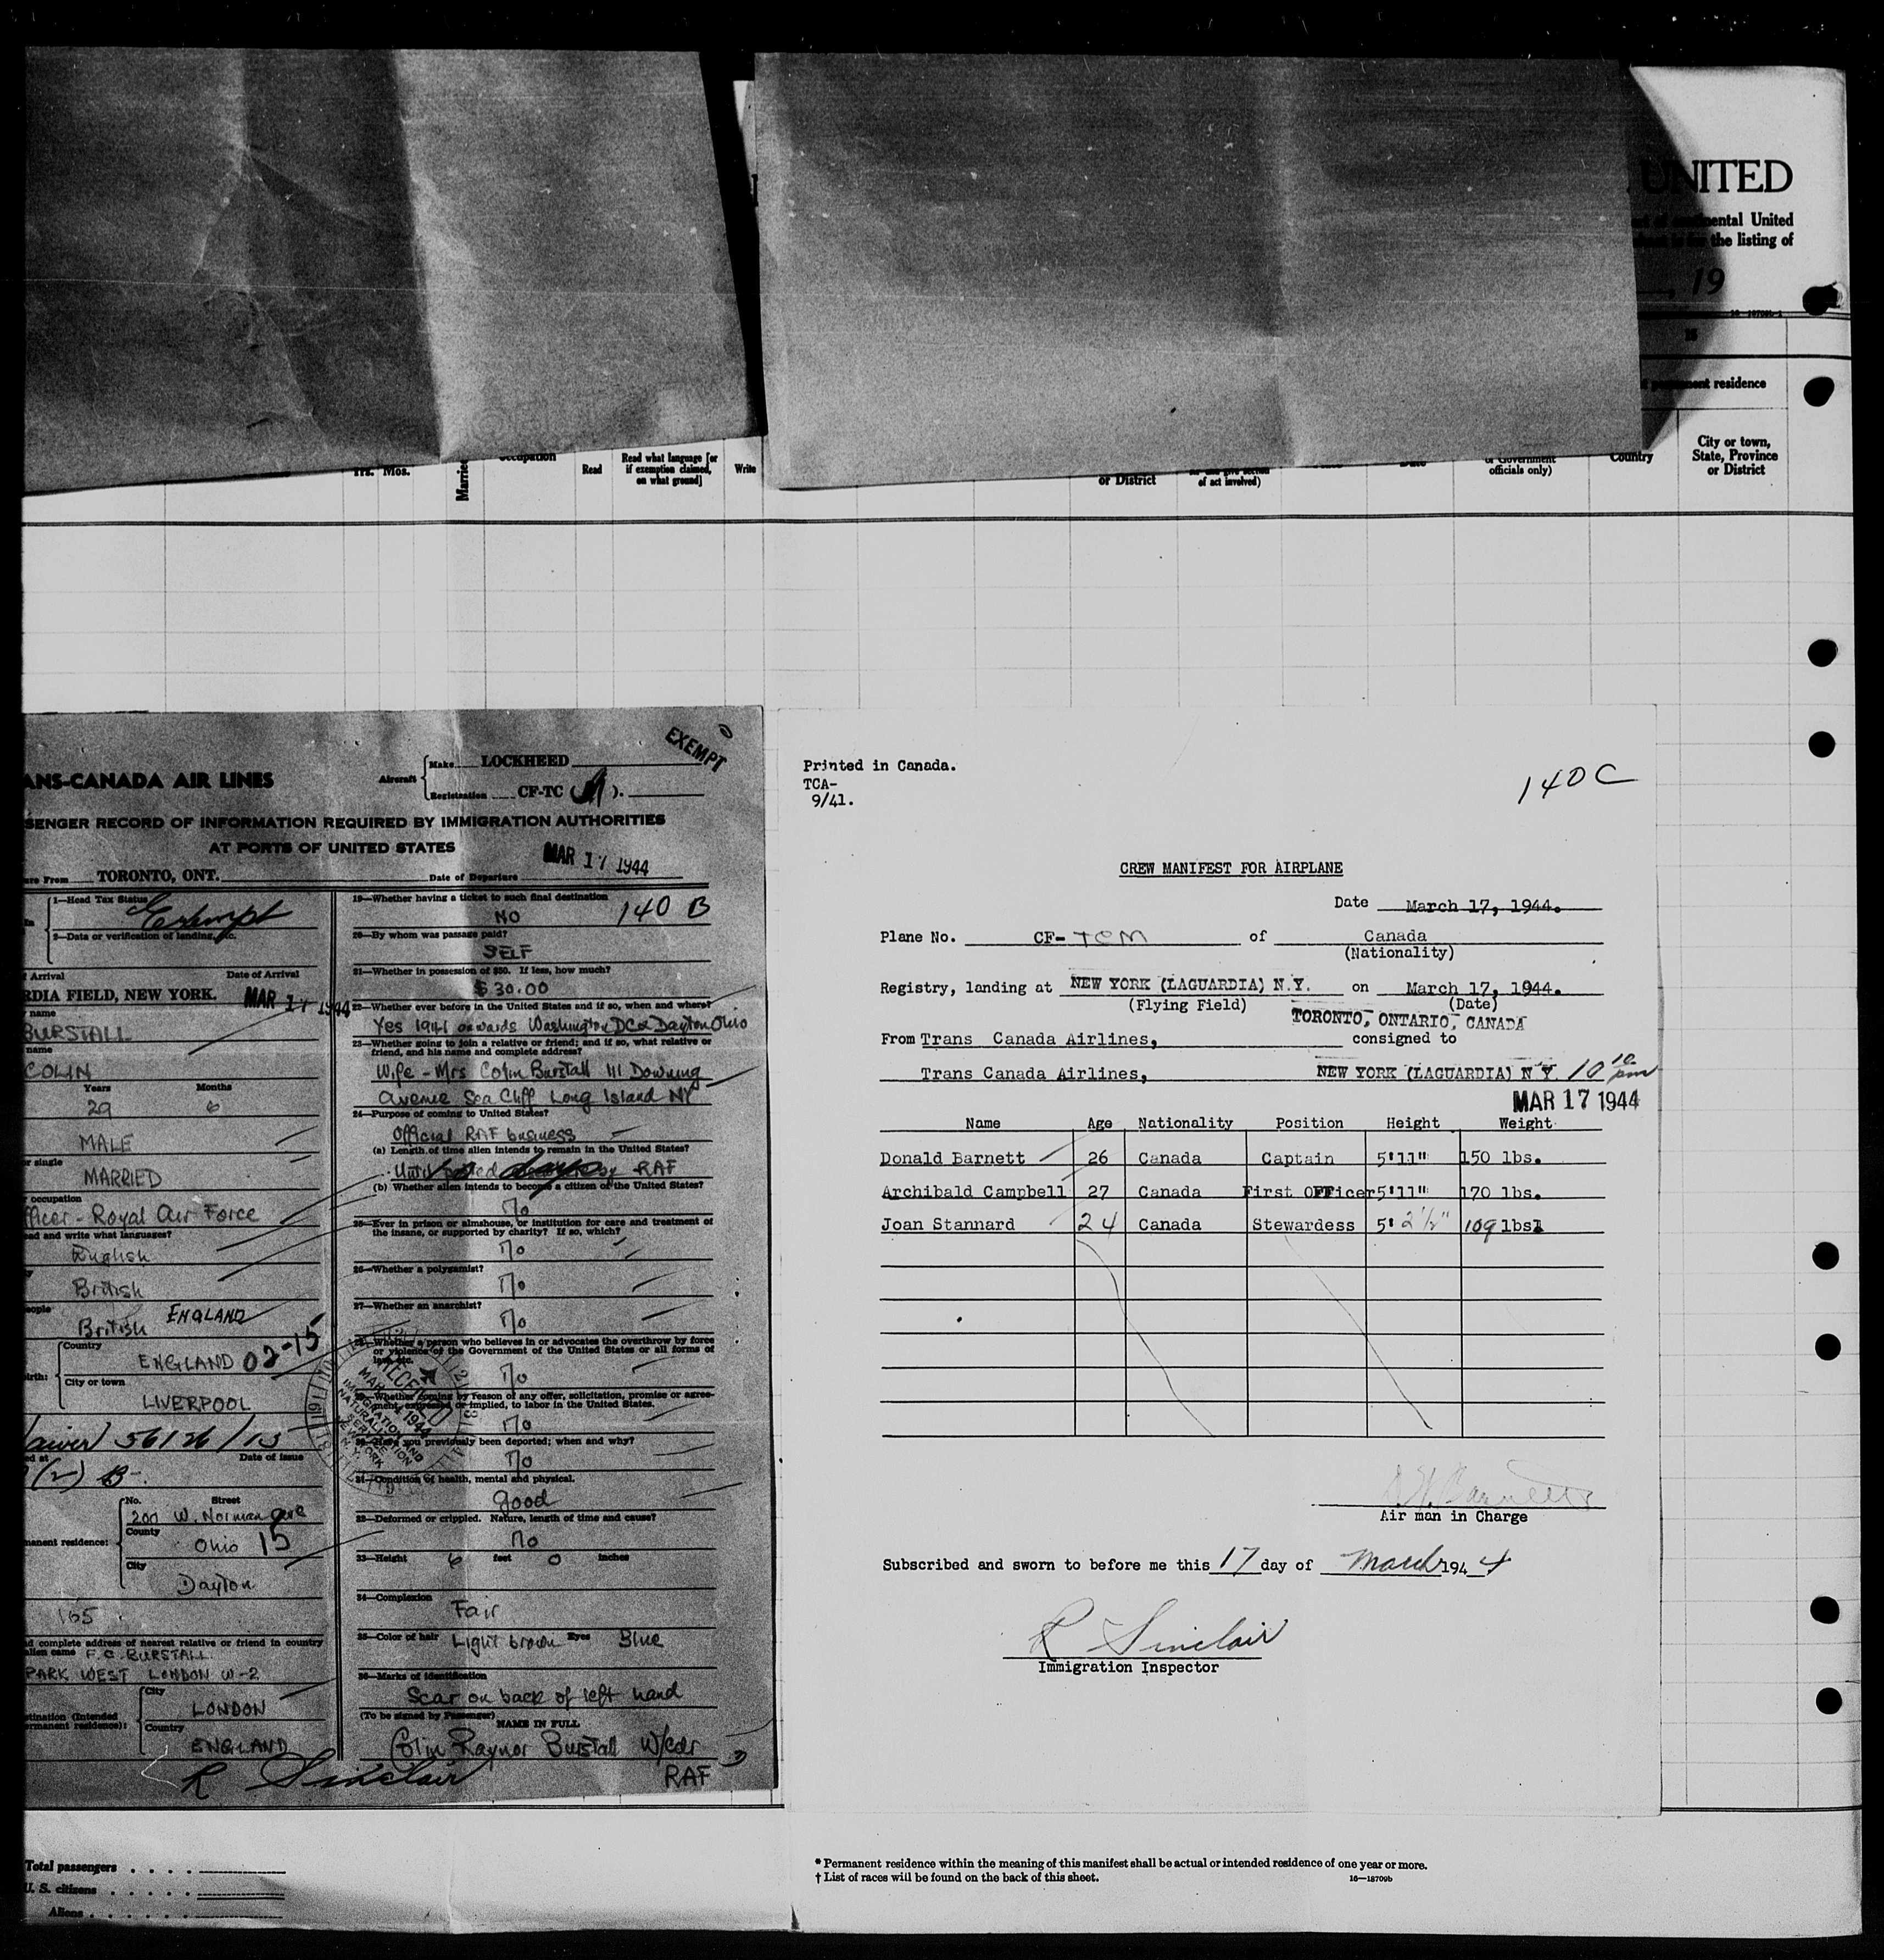 UNITED
ental United
the listing of
, 19
15
residence
City or town,
State, Province
or District
Country
officials only)
of act involved)
or District
Write
Read what language [or
if exemption claimed,
on what ground]
Read
Occupation
Married
Yrs. Mos.
EXEMPT
ANS-CANADA AIR LINES
Aircraft
Make LOCKHEED
Registration CF-TC (M).
SENGER RECORD OF INFORMATION REQUIRED BY IMMIGRATION AUTHORITIES
AT PORTS OF UNITED STATES
MAR 17 1944
ure From TORONTO, ONT. Date of Departure
1—Head Tax Status
Exempt
2—Data or verification of landing, etc.
Arrival Date of Arrival
RDIA FIELD, NEW YORK. MAR 17 1944
name
BURSTALL
name
COLIN
Years Months
29 6
MALE
or single
MARRIED
occupation
fficer - Royal Air Force
ead and write what languages?
English
British
eople
British ENGLAND
Country
ENGLAND 02-15
irth:
City or town
LIVERPOOL
aiver 56126/15
ed at Date of issue
(2) B-
No. Street
200 W. Norman ave
County
manent residence: Ohio 15
City
Dayton
165
d complete address of nearest relative or friend in country
alien came F.C. BURSTALL
PARK WEST LONDON W-2
City
LONDON
stination (Intended
ermanent residence):
Country
ENGLAND
R Sinclair
19—Whether having a ticket to such final destination
NO 140 B
20—By whom was passage paid?
SELF
21—Whether in possession of $50. If less, how much?
$30.00
22—Whether ever before in the United States and if so, when and where?
Yes 1941 onwards Washington DC & Dayton Ohio
23—Whether going to join a relative or friend; and if so, what relative or
friend, and his name and complete address?
Wife - Mrs Colin Burstall 111 Downing
avenue Sea Cliff Long Island NY
24—Purpose of coming to United States?
Official RAF business
(a) Length of time alien intends to remain in the United States?
Until by RAF
(b) Whether alien intends to become a citizen of the United States?
No
25—Ever in prison or almshouse, or institution for care and treatment of
the insane, or supported by charity? If so, which?
No
26—Whether a polygamist?
No
27—Whether an anarchist?
No
28—Whether a person who believes in or advocates the overthrow by force
or violence of the Government of the United States or all forms of
law, etc.
No
29—Whether coming by reason of any offer, solicitation, promise or agree-
ment, expressed or implied, to labor in the United States.
No
30—Have you previously been deported; when and why?
No
31—Condition of health, mental and physical.
good
32—Deformed or crippled. Nature, length of time and cause?
No
33—Height 6 feet 0 inches
34—Complexion
Fair
35—Color of hair Light brown Eyes Blue
36—Marks of identification
Scar on back of left hand
(To be signed by Passenger)
NAME IN FULL
Colin Raynor Burstall W/cdr
RAF
RECEIVED
MAR 1944
IMMIGRATION AND
NATURALIZATION
SERVICE
NEW YORK
N.Y.
Printed in Canada.
TCA-
9/41.
140 C
CREW MANIFEST FOR AIRPLANE
Date March 17, 1944.
Plane No. CF-TCM of Canada
(Nationality)
Registry, landing at NEW YORK (LAGUARDIA) N.Y. on March 17, 1944.
(Flying Field) (Date)
TORONTO, ONTARIO, CANADA
From Trans Canada Airlines, consigned to
Trans Canada Airlines, NEW YORK (LAGUARDIA) N.Y. 10 10 pm
MAR 17 1944
Name Age Nationality Position Height Weight
Donald Barnett 26 Canada Captain 5'11" 150 lbs.
Archibald Campbell 27 Canada First Officer 5'11" 170 lbs.
Joan Stannard 24 Canada Stewardess 5' 2½" 109 lbs.
Air man in Charge
Subscribed and sworn to before me this 17 day of March 1944
R Sinclair
Immigration Inspector
Total passengers
U. S. citizens
Aliens
* Permanent residence within the meaning of this manifest shall be actual or intended residence of one year or more.
† List of races will be found on the back of this sheet.
16—18709b